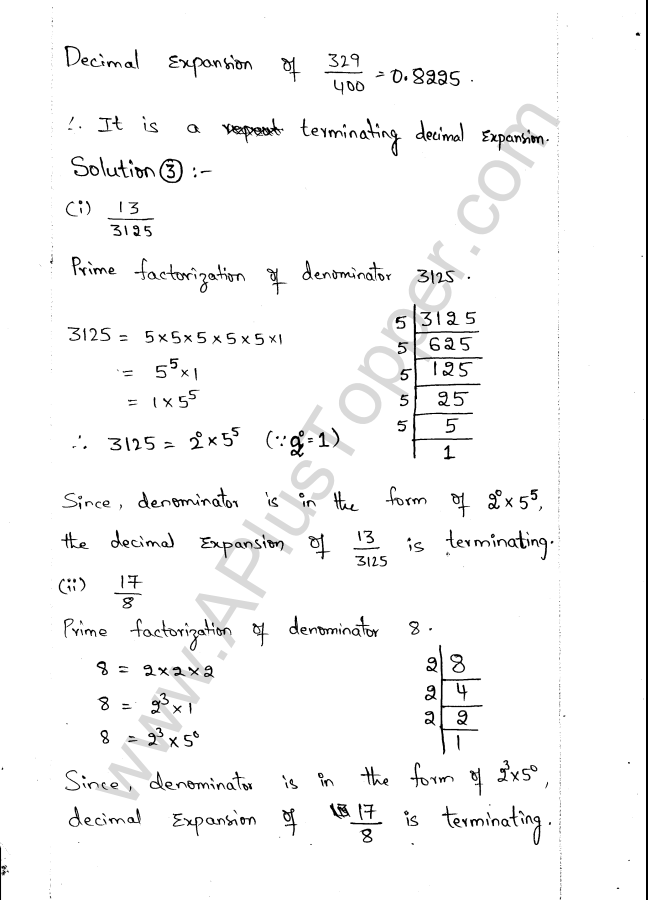 Decimal Expansion of 329/400 = 0.8225.
∴ It is a repeat terminating decimal Expansion.
Solution ③ :-
(i) 13/3125
Prime factorization of denominator 3125.
3125 = 5×5×5×5×5×1
= 5⁵×1
= 1×5⁵
∴ 3125 = 2⁰×5⁵ (∵ 2⁰=1)
5 | 3125
5 | 625
5 | 125
5 | 25
5 | 5
1
Since, denominator is in the form of 2⁰×5⁵,
the decimal Expansion of 13/3125 is terminating.
(ii) 17/8
Prime factorization of denominator 8.
8 = 2×2×2
8 = 2³×1
8 = 2³×5⁰
2 | 8
2 | 4
2 | 2
1
Since, denominator is in the form of 2³×5⁰,
decimal Expansion of 17/8 is terminating.
www.APlusTopper.com